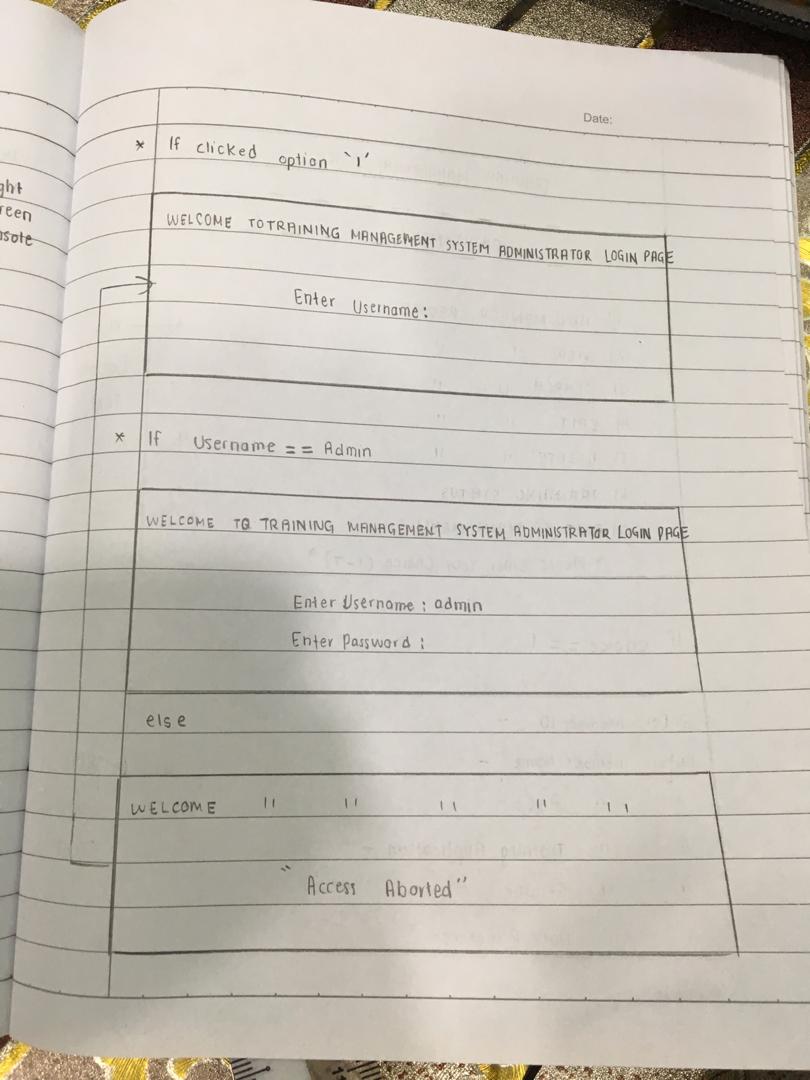 Date:
* If clicked option '1'
ght
reen
WELCOME TO TRAINING MANAGEMENT SYSTEM ADMINISTRATOR LOGIN PAGE
Enter Username:
* If Username == Admin
WELCOME TO TRAINING MANAGEMENT SYSTEM ADMINISTRATOR LOGIN PAGE
Enter Username : admin
Enter Password :
else
WELCOME " " " " "
"Access Aborted"